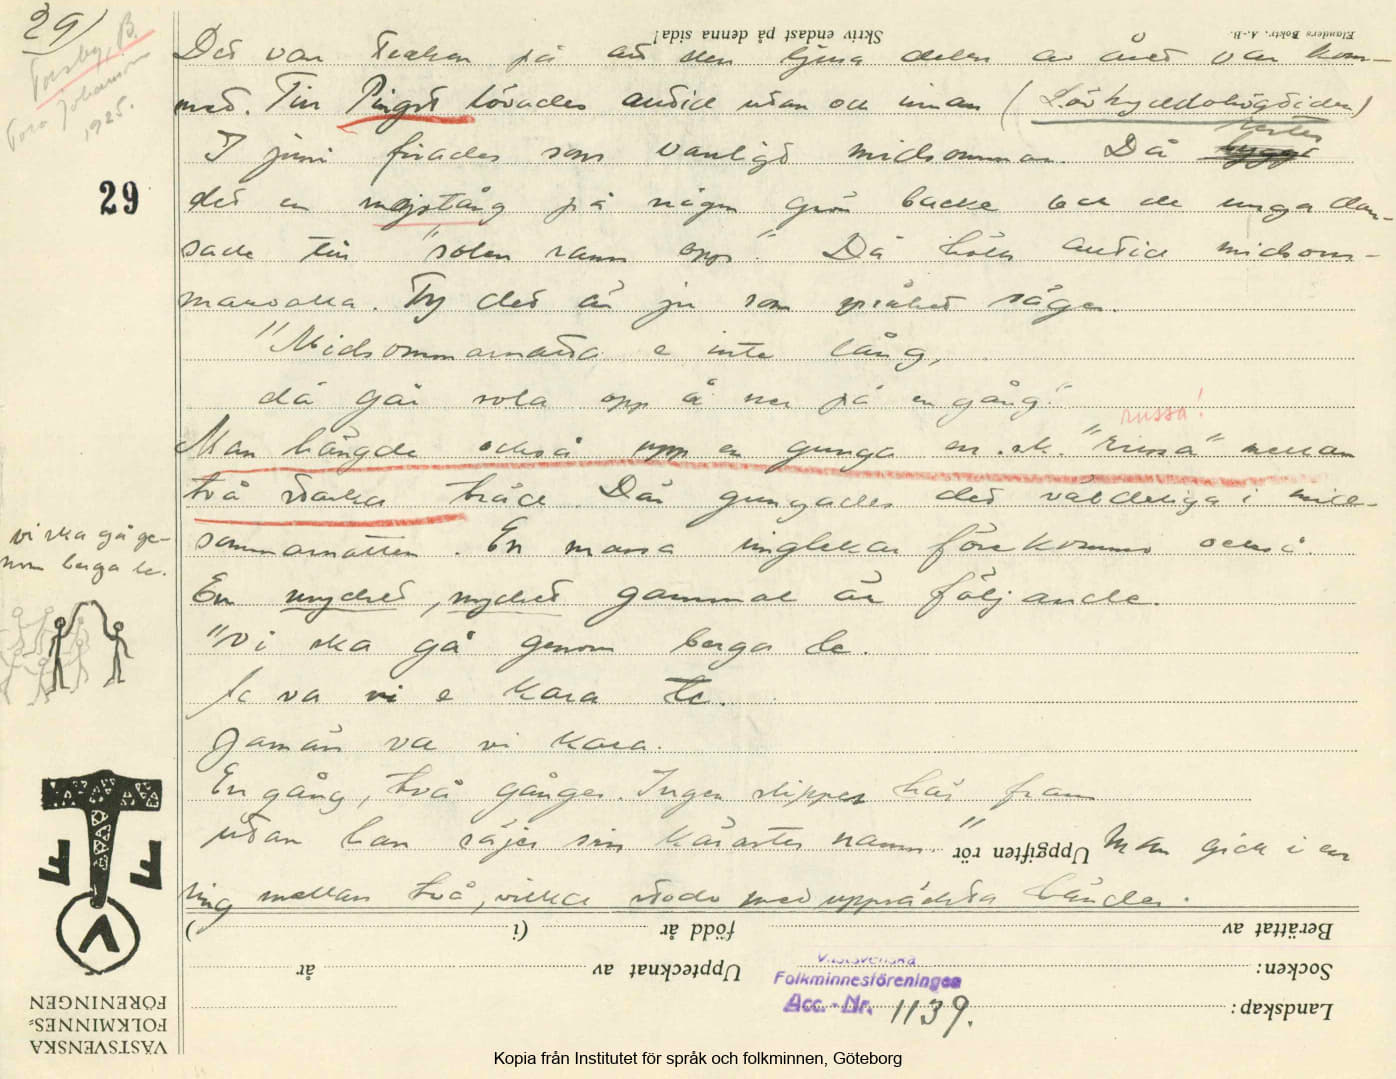 29)
Torsby, B.
Tora Johansson
1925.
Skriv endast på denna sida!
Elanders Boktr. A.-B.
Det var tecken på att den ljusa delen av året var kom-
met. Till Pingst lövades alltid utan och innan (Lövhyddohögtiden)
I juni firades som vanligt midsommar. Då restes
29
det en majstång på någon grön backe och de unga dan-
sade till "solen rann opp". Då hölls alltid midsom-
marvaka. Ty det är ju som språket säger.
"Midsommarnatta e inte lång,
då går sola opp å ner på en gång."
russa!
Man hängde också upp en gunga en s.k. "russa" mellan
två starka träd. Där gungades det väldeliga i mid-
sommarnatten. En massa ringlekar förekommo också.
vi ska gå ge-
nom berga le.
En mycket, mycket gammal är följande.
"Vi ska gå genom berga le.
Ja va vi e kara le.
Jamän va vi kara.
En gång, två gånger. Ingen slipper här fram
utan han säjer sin kärastes namn."
Uppgiften rör
Man gick i en
ring mellan två, vilka stodo med uppräckta händer.
Berättat av
född år
(i
)
Upptecknat av
år
Socken:
Landskap:
Västsvenska
Folkminnesföreningen
Acc.-Nr. 1139.
VÄSTSVENSKA
FOLKMINNES-
FÖRENINGEN
Kopia från Institutet för språk och folkminnen, Göteborg